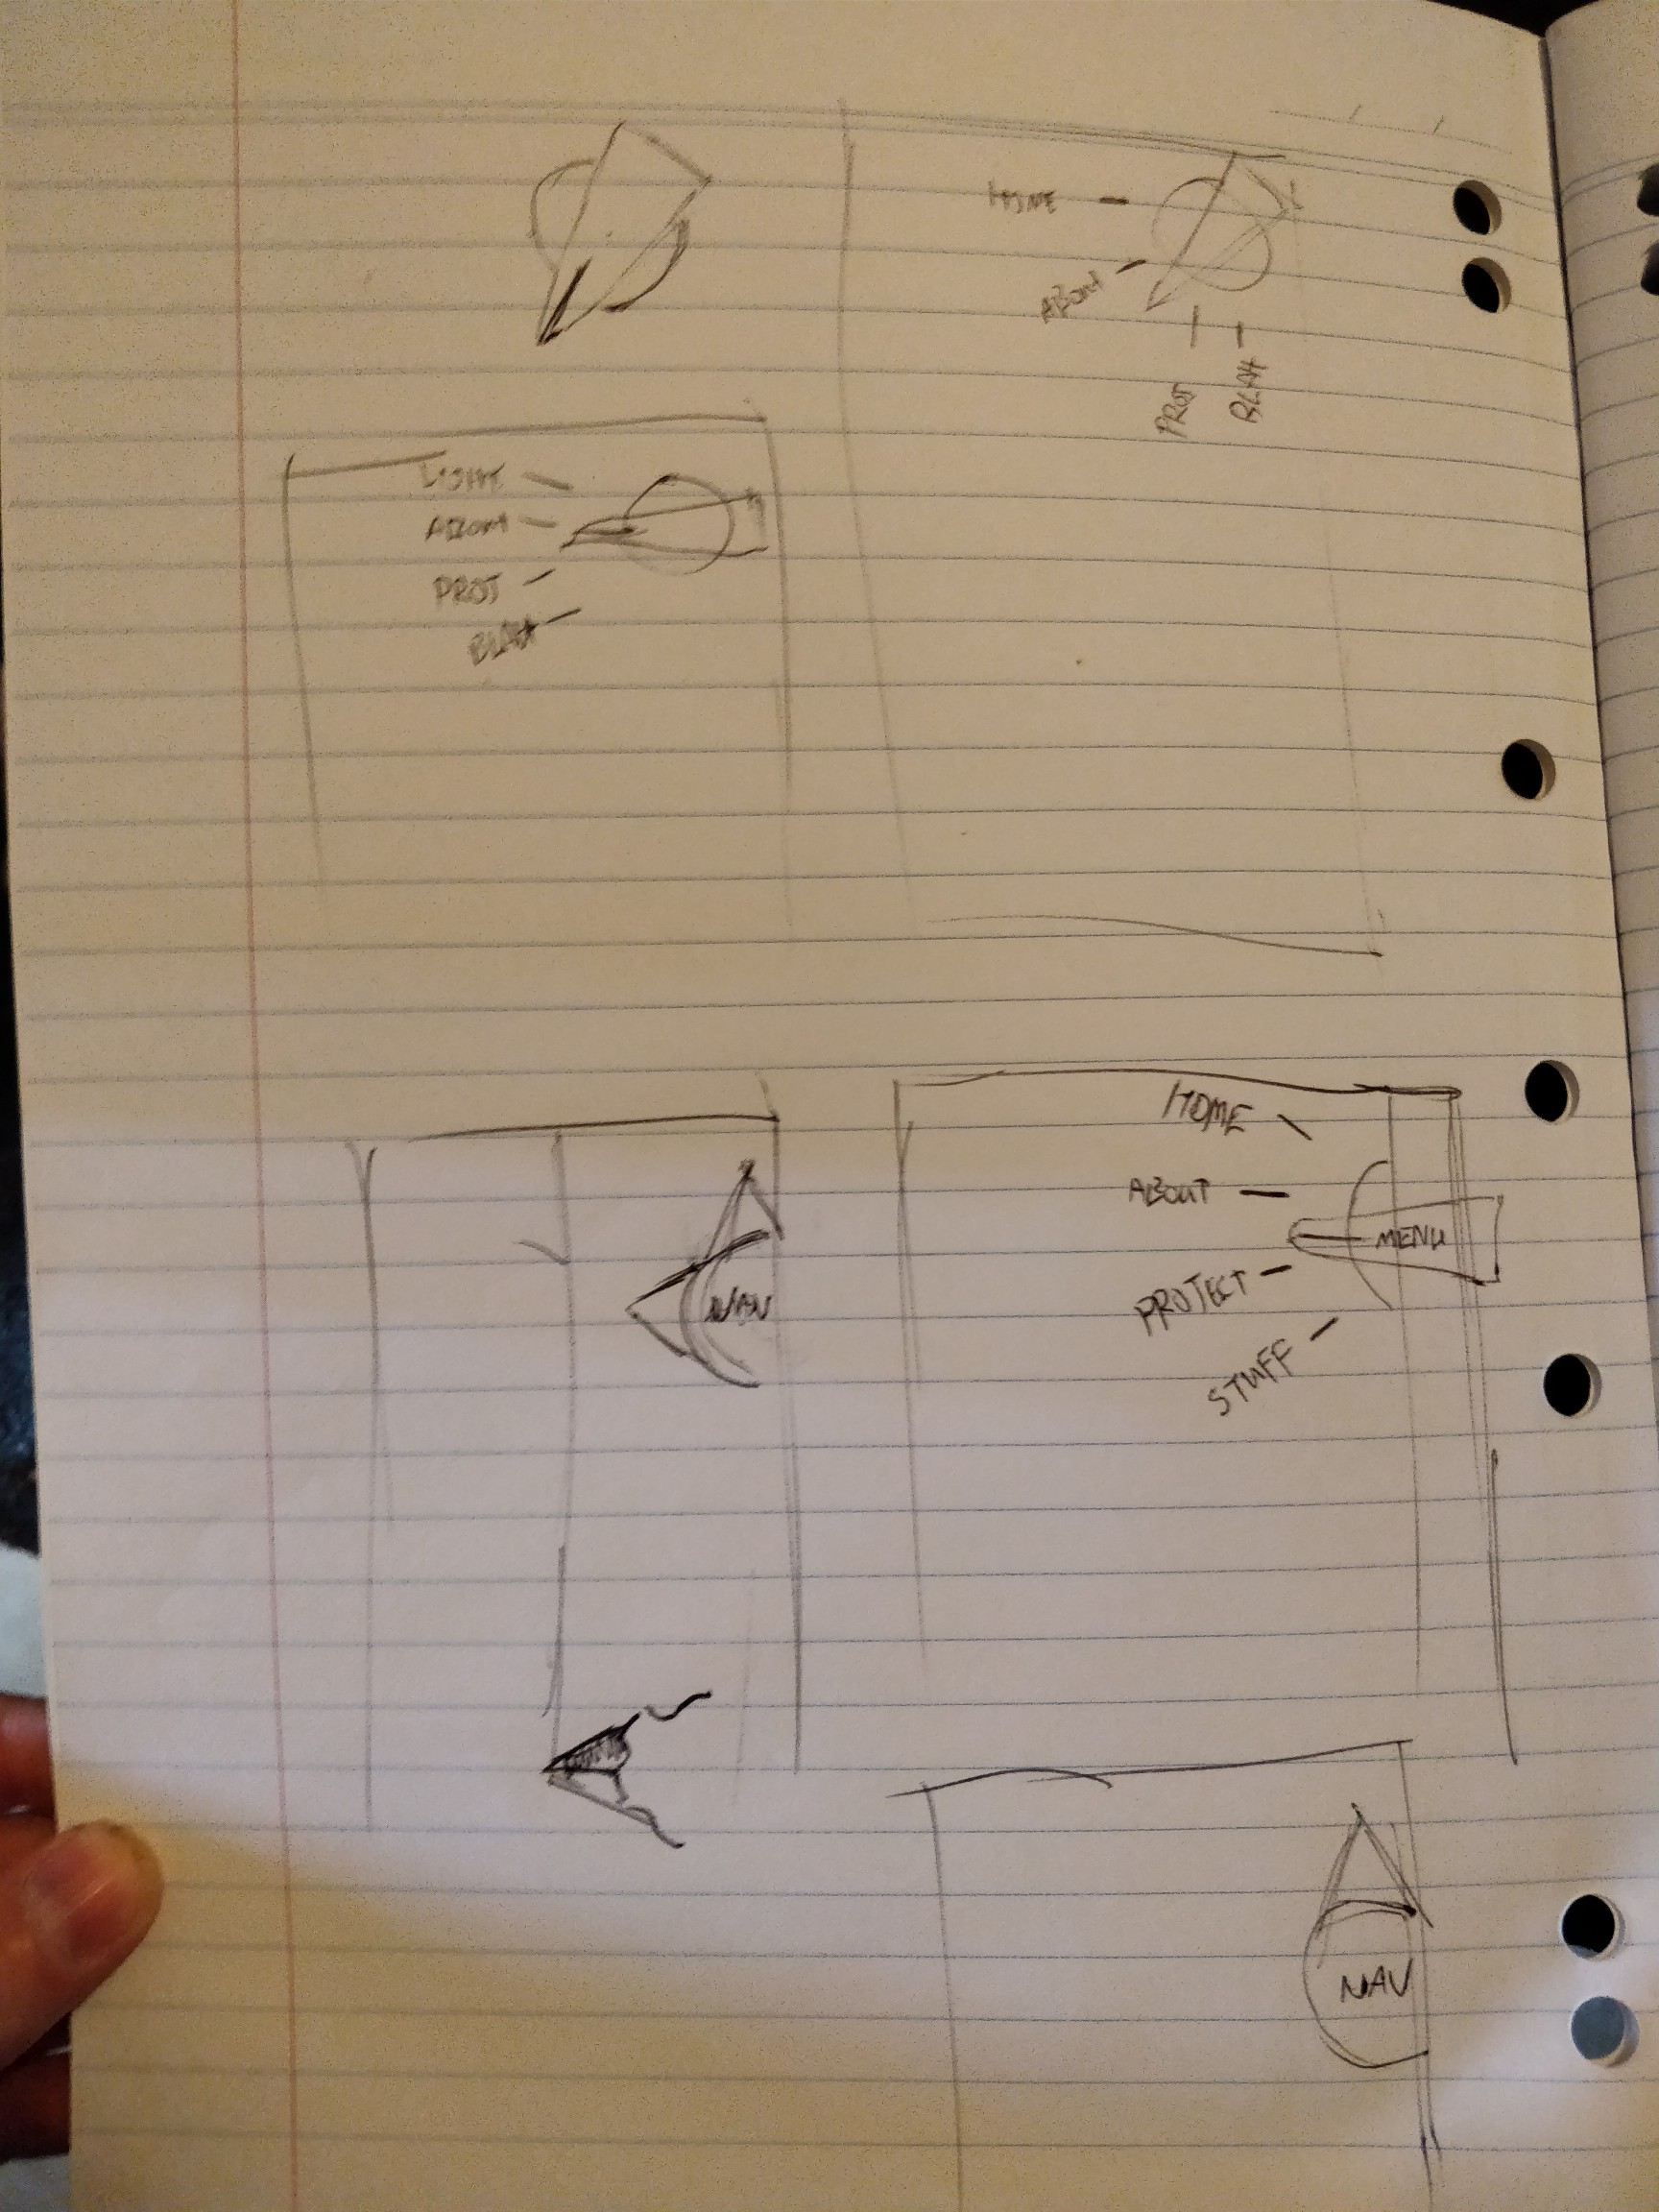 HOME
ABOUT
PROJ
BLAH
LIGHT
ABOUT
PROJ
BLAH
HOME
ABOUT
MENU
PROJECT
STUFF
NAV
NAV